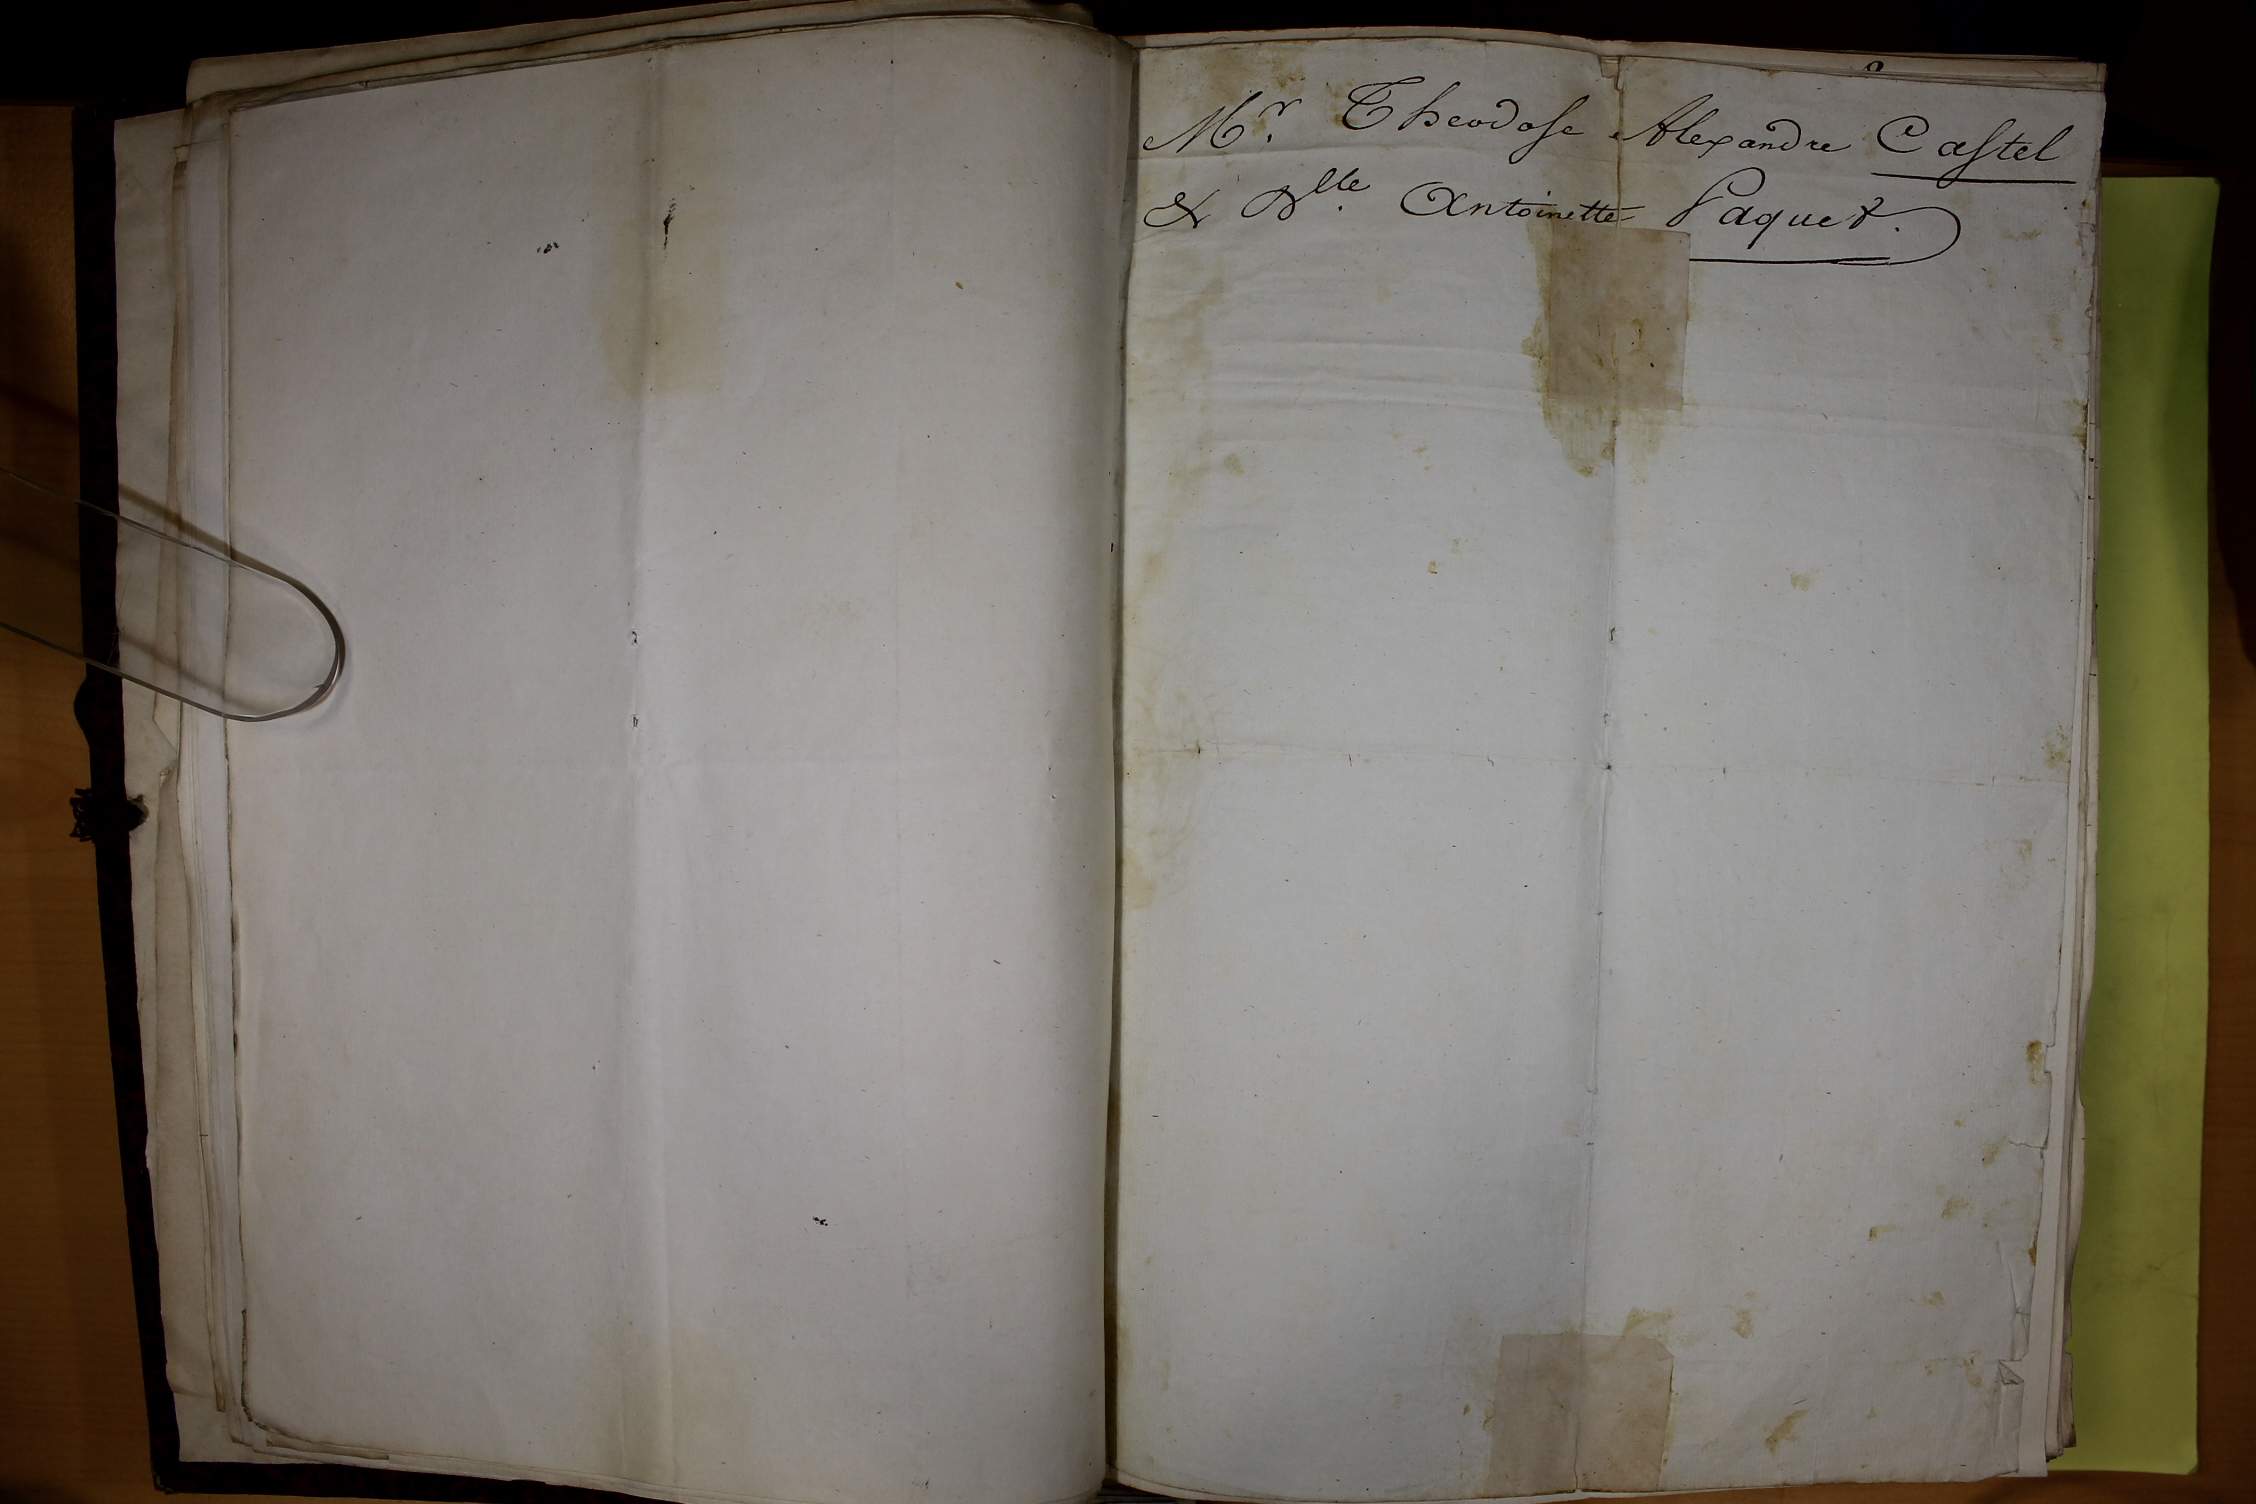 Mr. Theodose Alexandre Castel
& Dlle. Antoinette Paquet.